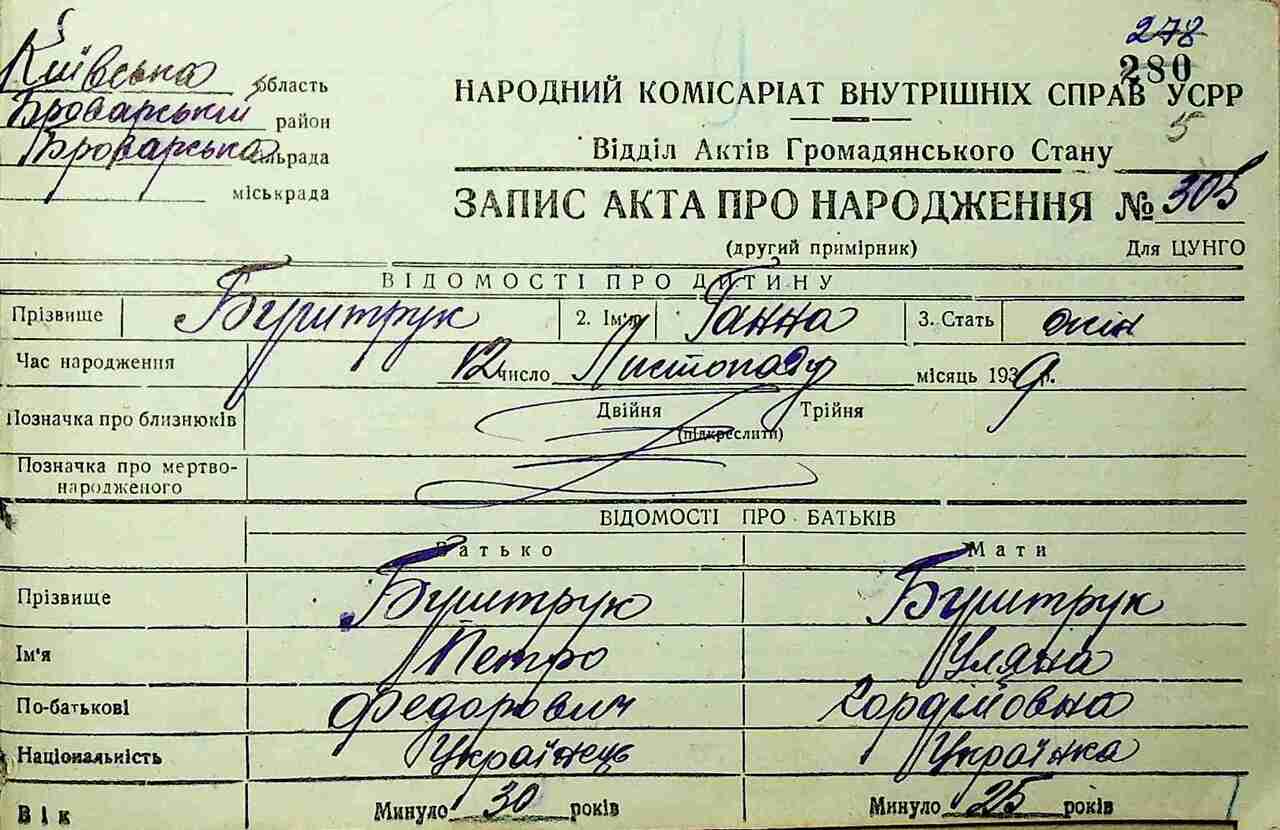 278
280
Київська область
Броварський район
Броварська сільрада
міськрада
НАРОДНИЙ КОМІСАРІАТ ВНУТРІШНІХ СПРАВ УСРР
5
Відділ Актів Громадянського Стану
ЗАПИС АКТА ПРО НАРОДЖЕННЯ № 305
(другий примірник) Для ЦУНГО
ВІДОМОСТІ ПРО ДИТИНУ
Прізвище Буштрук 2. Ім'я Ганна 3. Стать жін
Час народження 12 число Листопаду місяць 1939 р.
Позначка про близнюків Двійня Трійня
(підкреслити)
Позначка про мертво-
народженого
ВІДОМОСТІ ПРО БАТЬКІВ
Батько Мати
Прізвище Буштрук Буштрук
Ім'я Петро Уляна
По-батькові Федорович Гордійовна
Національність Українець Українка
Вік Минуло 30 років Минуло 25 років